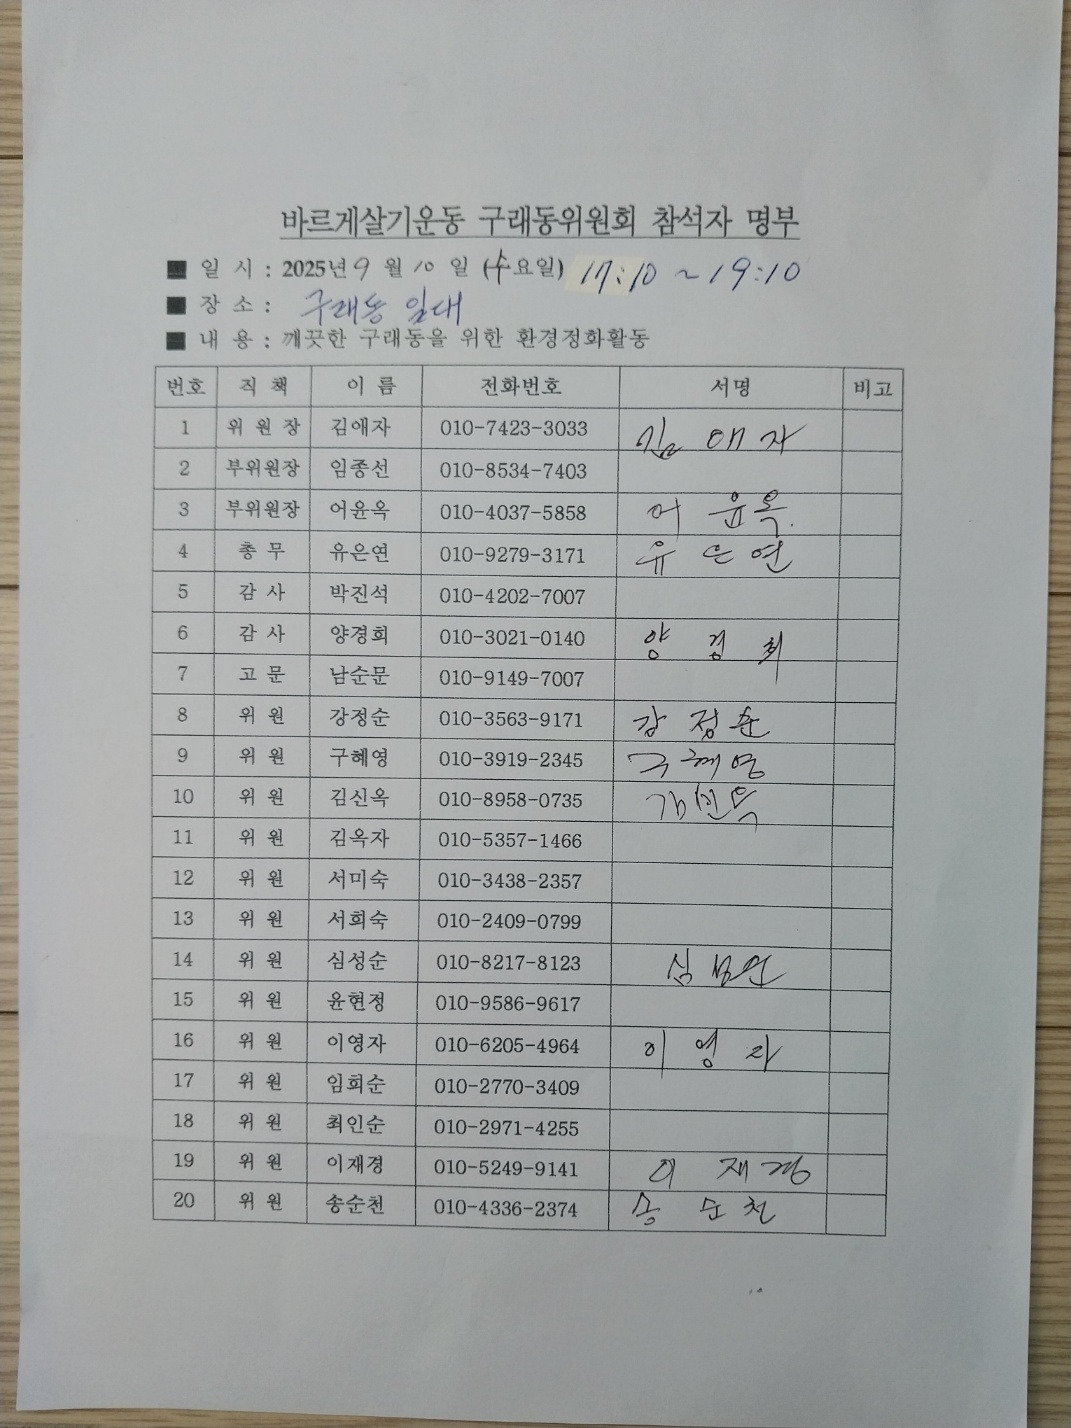 바르게살기운동 구래동위원회 참석자 명부
■ 일 시 : 2025년 9 월 10 일 (수요일) 17:10 ~ 19:10
■ 장 소 : 구래동 일대
■ 내 용 : 깨끗한 구래동을 위한 환경정화활동
번호 직 책 이 름 전화번호 서명 비고
1 위 원 장 김애자 010-7423-3033 김 애 자
2 부위원장 임종선 010-8534-7403
3 부위원장 어윤옥 010-4037-5858 어 윤옥.
4 총 무 유은연 010-9279-3171 유 은 연
5 감 사 박진석 010-4202-7007
6 감 사 양경희 010-3021-0140 양 경 희
7 고 문 남순문 010-9149-7007
8 위 원 강정순 010-3563-9171 강 정 순
9 위 원 구혜영 010-3919-2345 구 혜 영
10 위 원 김신옥 010-8958-0735 김신옥
11 위 원 김옥자 010-5357-1466
12 위 원 서미숙 010-3438-2357
13 위 원 서희숙 010-2409-0799
14 위 원 심성순 010-8217-8123 심 성순
15 위 원 윤현정 010-9586-9617
16 위 원 이영자 010-6205-4964 이 영 자
17 위 원 임희순 010-2770-3409
18 위 원 최인순 010-2971-4255
19 위 원 이재경 010-5249-9141 이 재 경
20 위 원 송순천 010-4336-2374 송 순 천